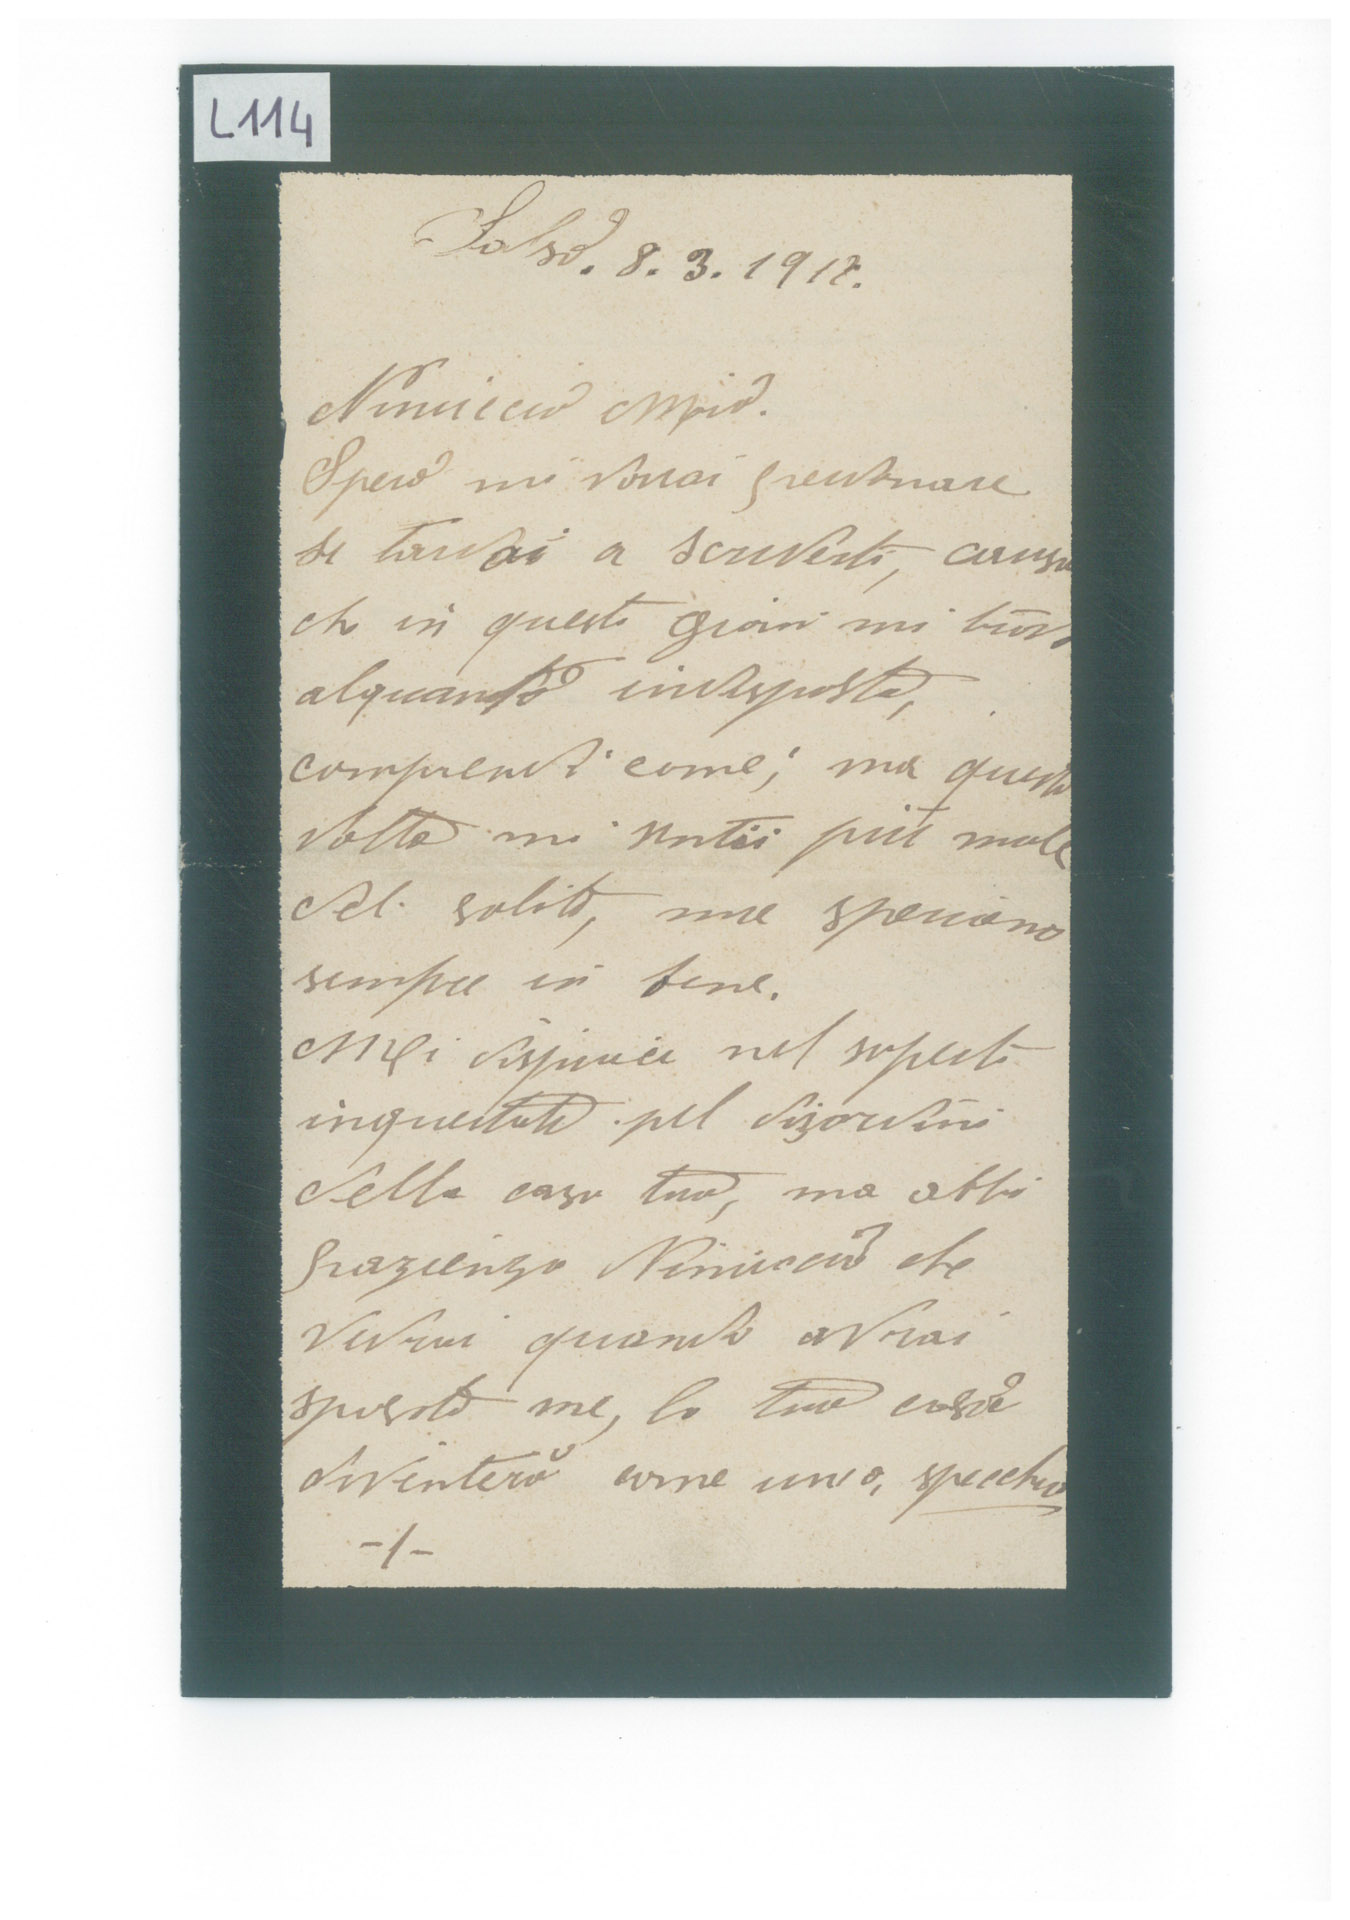 L114
Salso. 8. 3. 1917.
Ninuccio Mio.
Spero mi vorrai perdonare
se tardai a scriverti, causa
che in questi giorni mi trovo
alquanto indisposta,
comprendi come; ma questa
volta mi sentii più male
del solito, me speriamo
sempre in bene.
Mi dispiace nel saperti
inquietato pel disordini
della casa tua, ma abbi
pazienza Ninuccio che
vedrai quando avrai
sposato me, la tua casa
diventerà come uno, specchio
-/-